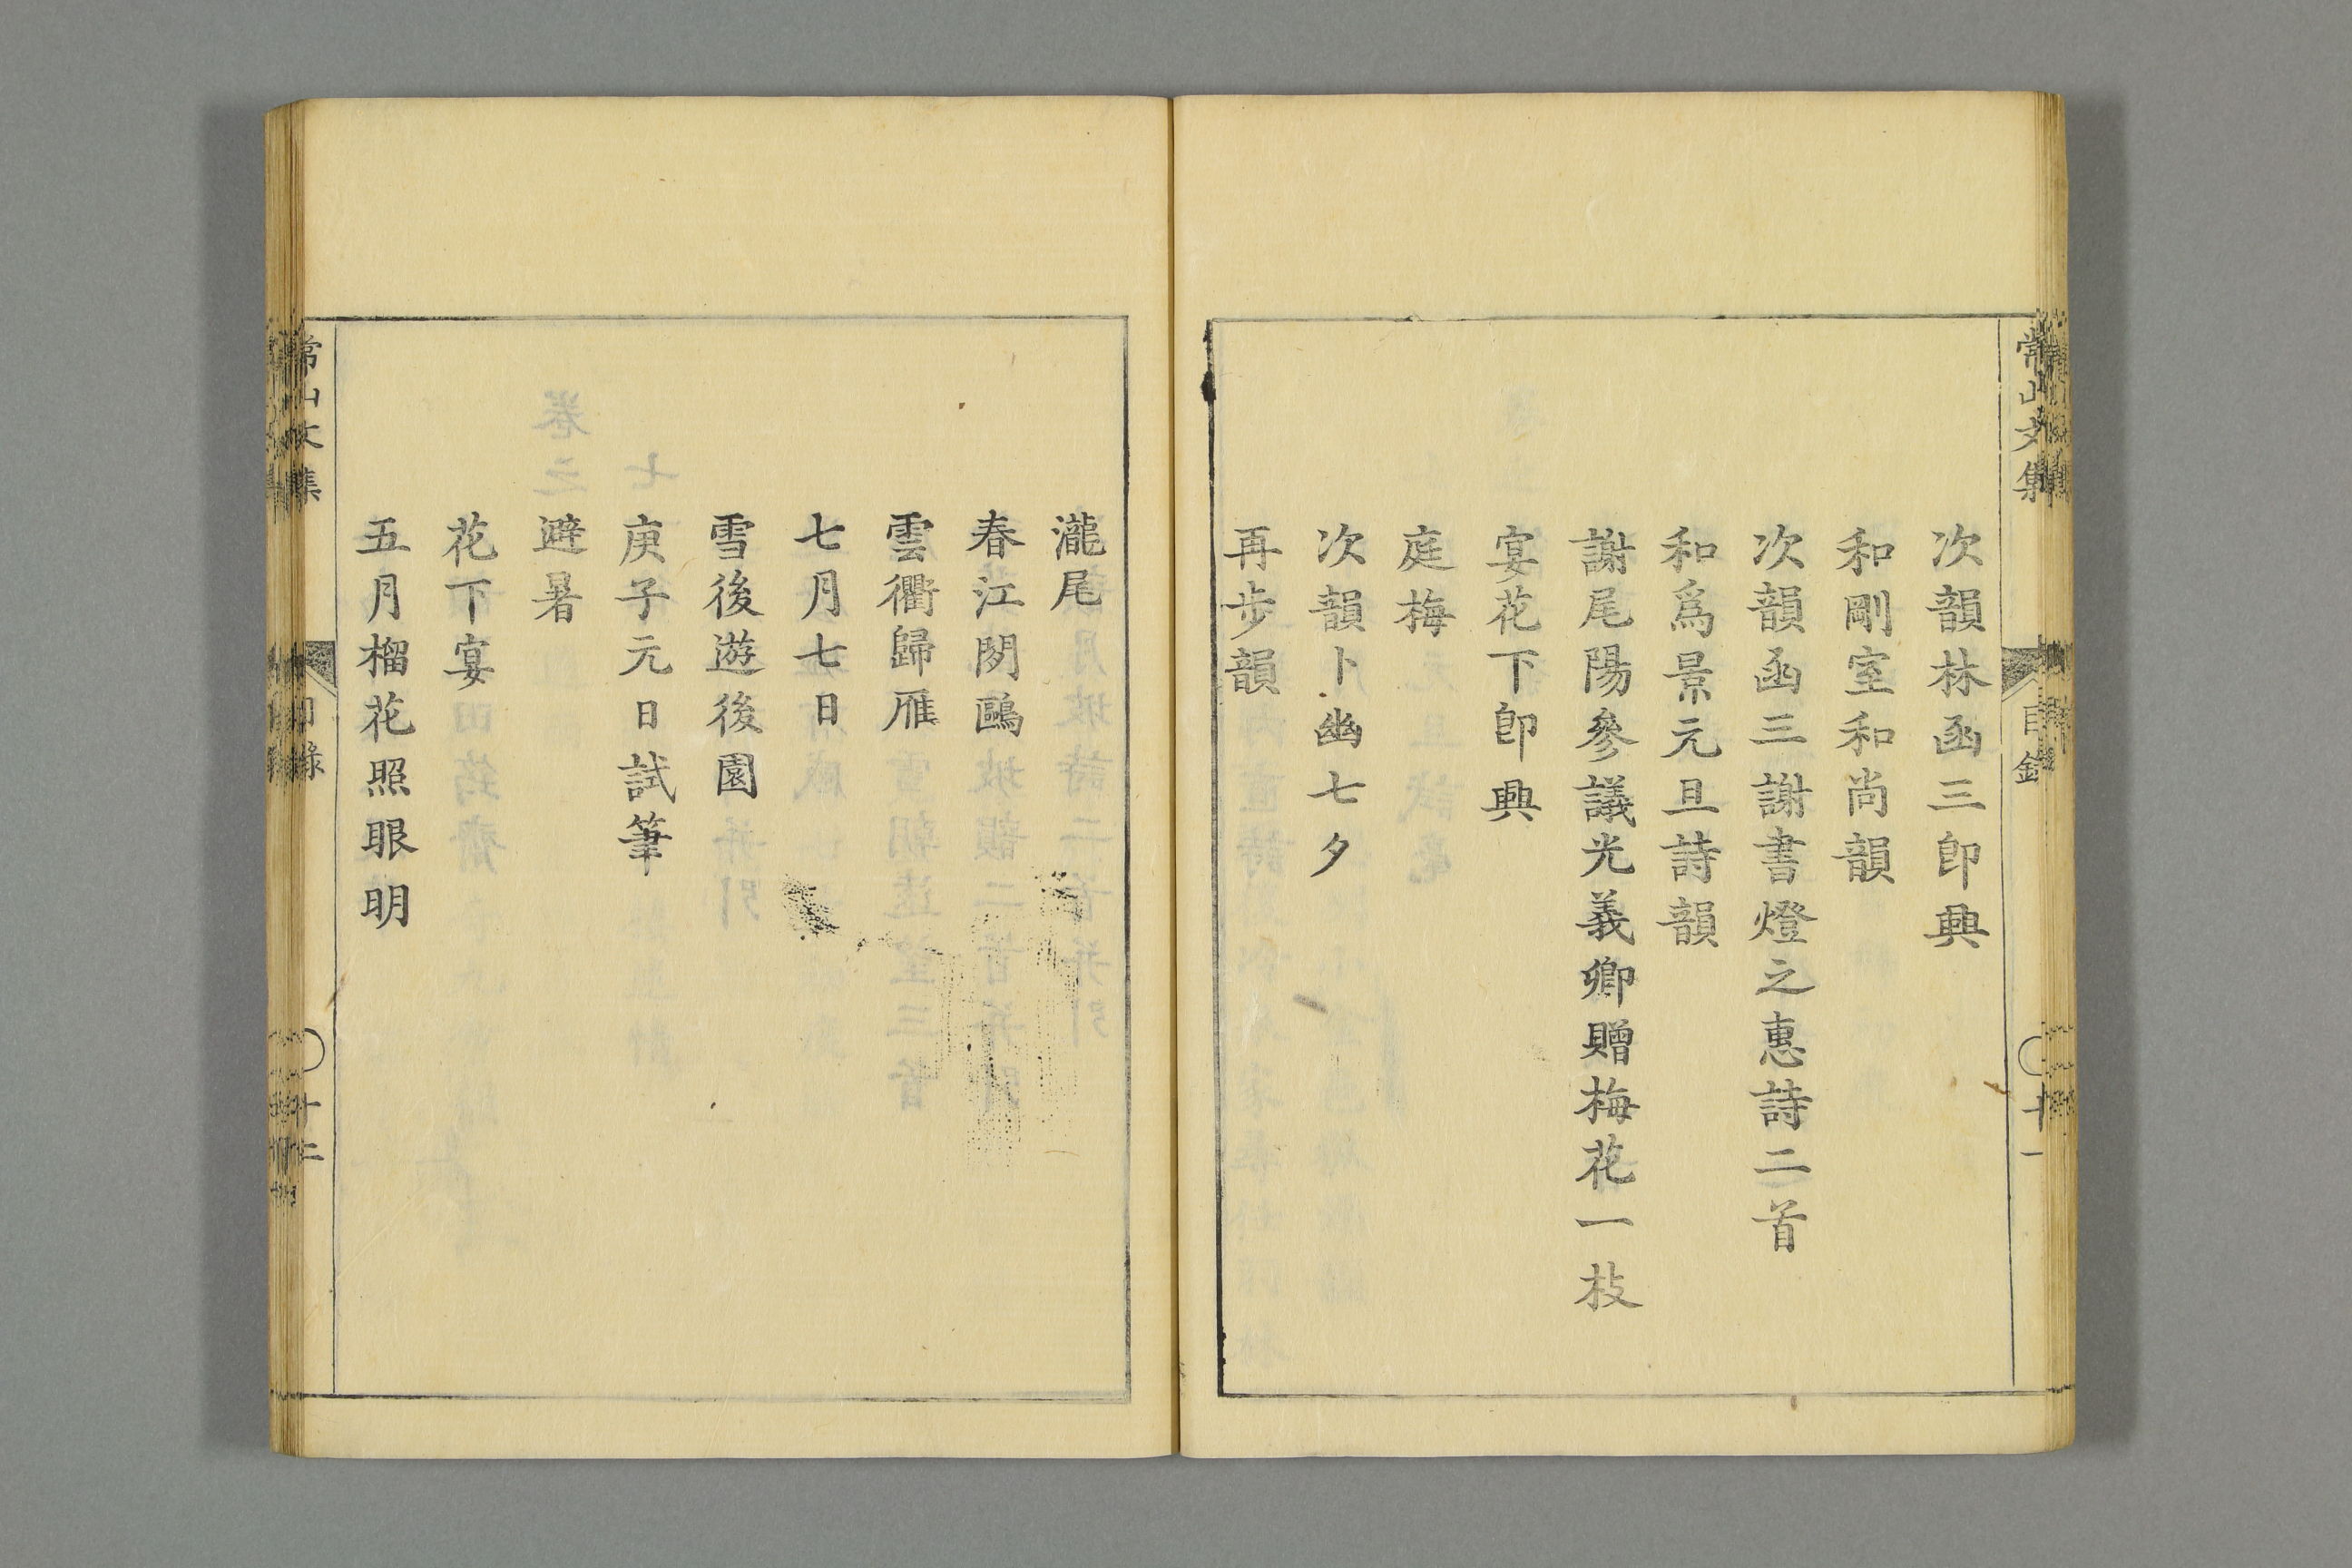 常山文集
目錄
十一
次韻林函三卽興
和剛室和尚韻
次韻函三謝書燈之惠詩二首
和爲景元旦詩韻
謝尾陽參議光義卿贈梅花一枝
宴花下卽興
庭梅
次韻卜幽七夕
再步韻
瀧尾
春江閑鷗
雲衢歸雁
七月七日
雪後遊後園
庚子元日試筆
避暑
花下宴
五月榴花照眼明
常山文集
目錄
十二